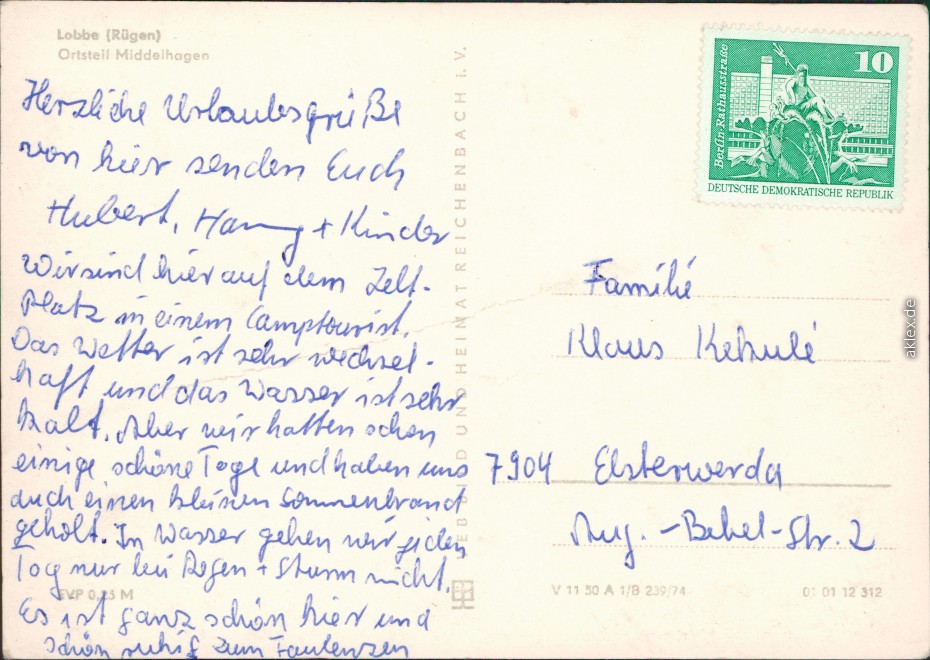 Lobbe (Rügen)
Ortsteil Middelhagen
Herzliche Urlaubsgrüße
von hier senden Euch
Hubert, Hanny + Kinder
Wir sind hier auf dem Zelt-
Platz in einem Camptourist.
Das Wetter ist sehr wechsel-
haft und das Wasser ist sehr
kalt. Aber wir hatten schon
einige schöne Tage und haben uns
auch einen kleinen Sonnenbrand
geholt. In Wasser gehen wir jeden
Tag nur bei Regen + Sturm nicht.
Es ist ganz schön hier und
schön ruhig zum Faulenzen
EVP 0,25 M
VEB BILD UND HEIMAT REICHENBACH I. V.
10
Berlin-Rathausstraße
DEUTSCHE DEMOKRATISCHE REPUBLIK
Familie
Klaus Kekulé
7904 Elsterwerda
Aug.-Bebel-Str. 2
V 11 50 A 1/B 239/74
01 01 12 312
aklex.de